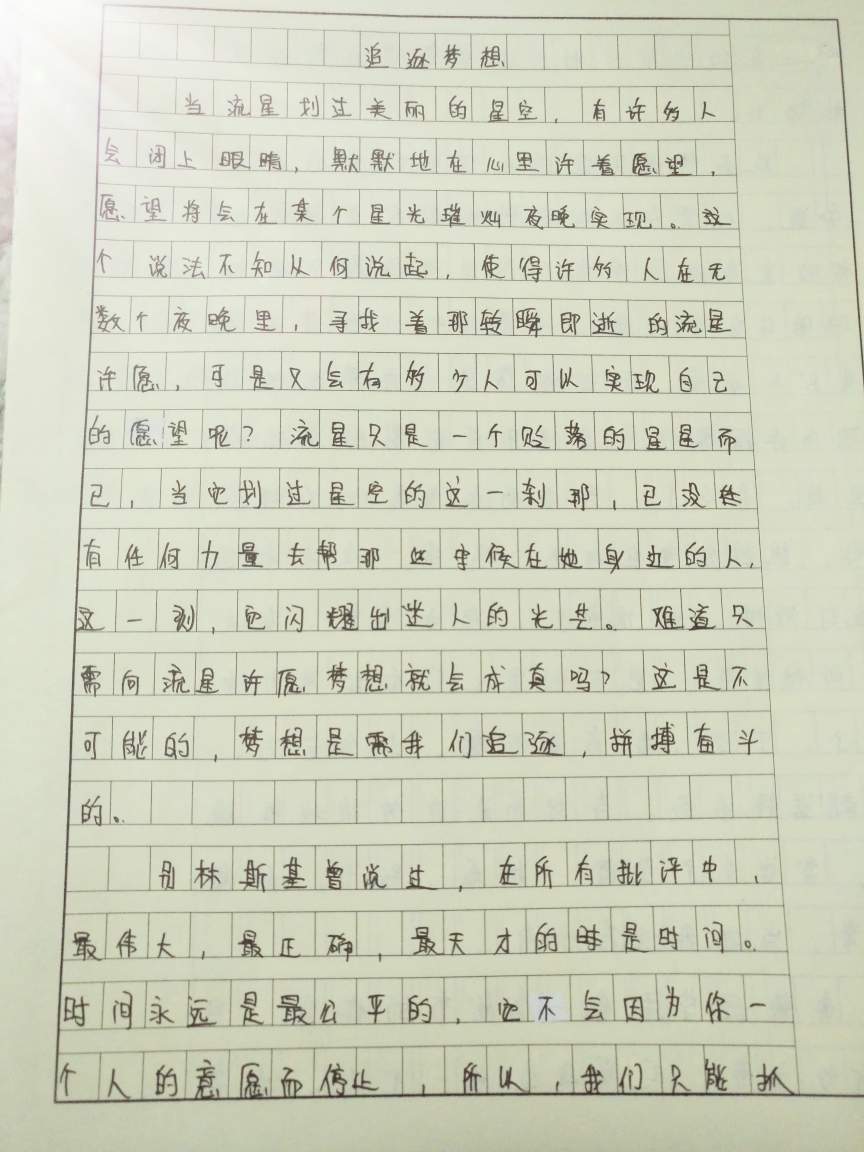 追逐梦想
当流星划过美丽的星空，有许多人
会闭上眼睛，默默地在心里许着愿望，
愿望将会在某个星光璀灿夜晚实现。这
个说法不知从何说起，使得许多人在无
数个夜晚里，寻找着那转瞬即逝的流星
许愿，可是又会有多少人可以实现自己
的愿望呢？流星只是一个贬落的星星而
已，当它划过星空的这一刹那，已没
有任何力量去帮那些守候在她身边的人，
这一刻，它闪耀出迷人的光芒。难道只
需向流星许愿梦想就会成真吗？这是不
可能的，梦想是需我们追逐，拼搏奋斗
的。
别林斯基曾说过，在所有批评中，
最伟大，最正确，最天才的是时间。
时间永远是最公平的，它不会因为你一
个人的意愿而停止，所以，我们只能抓